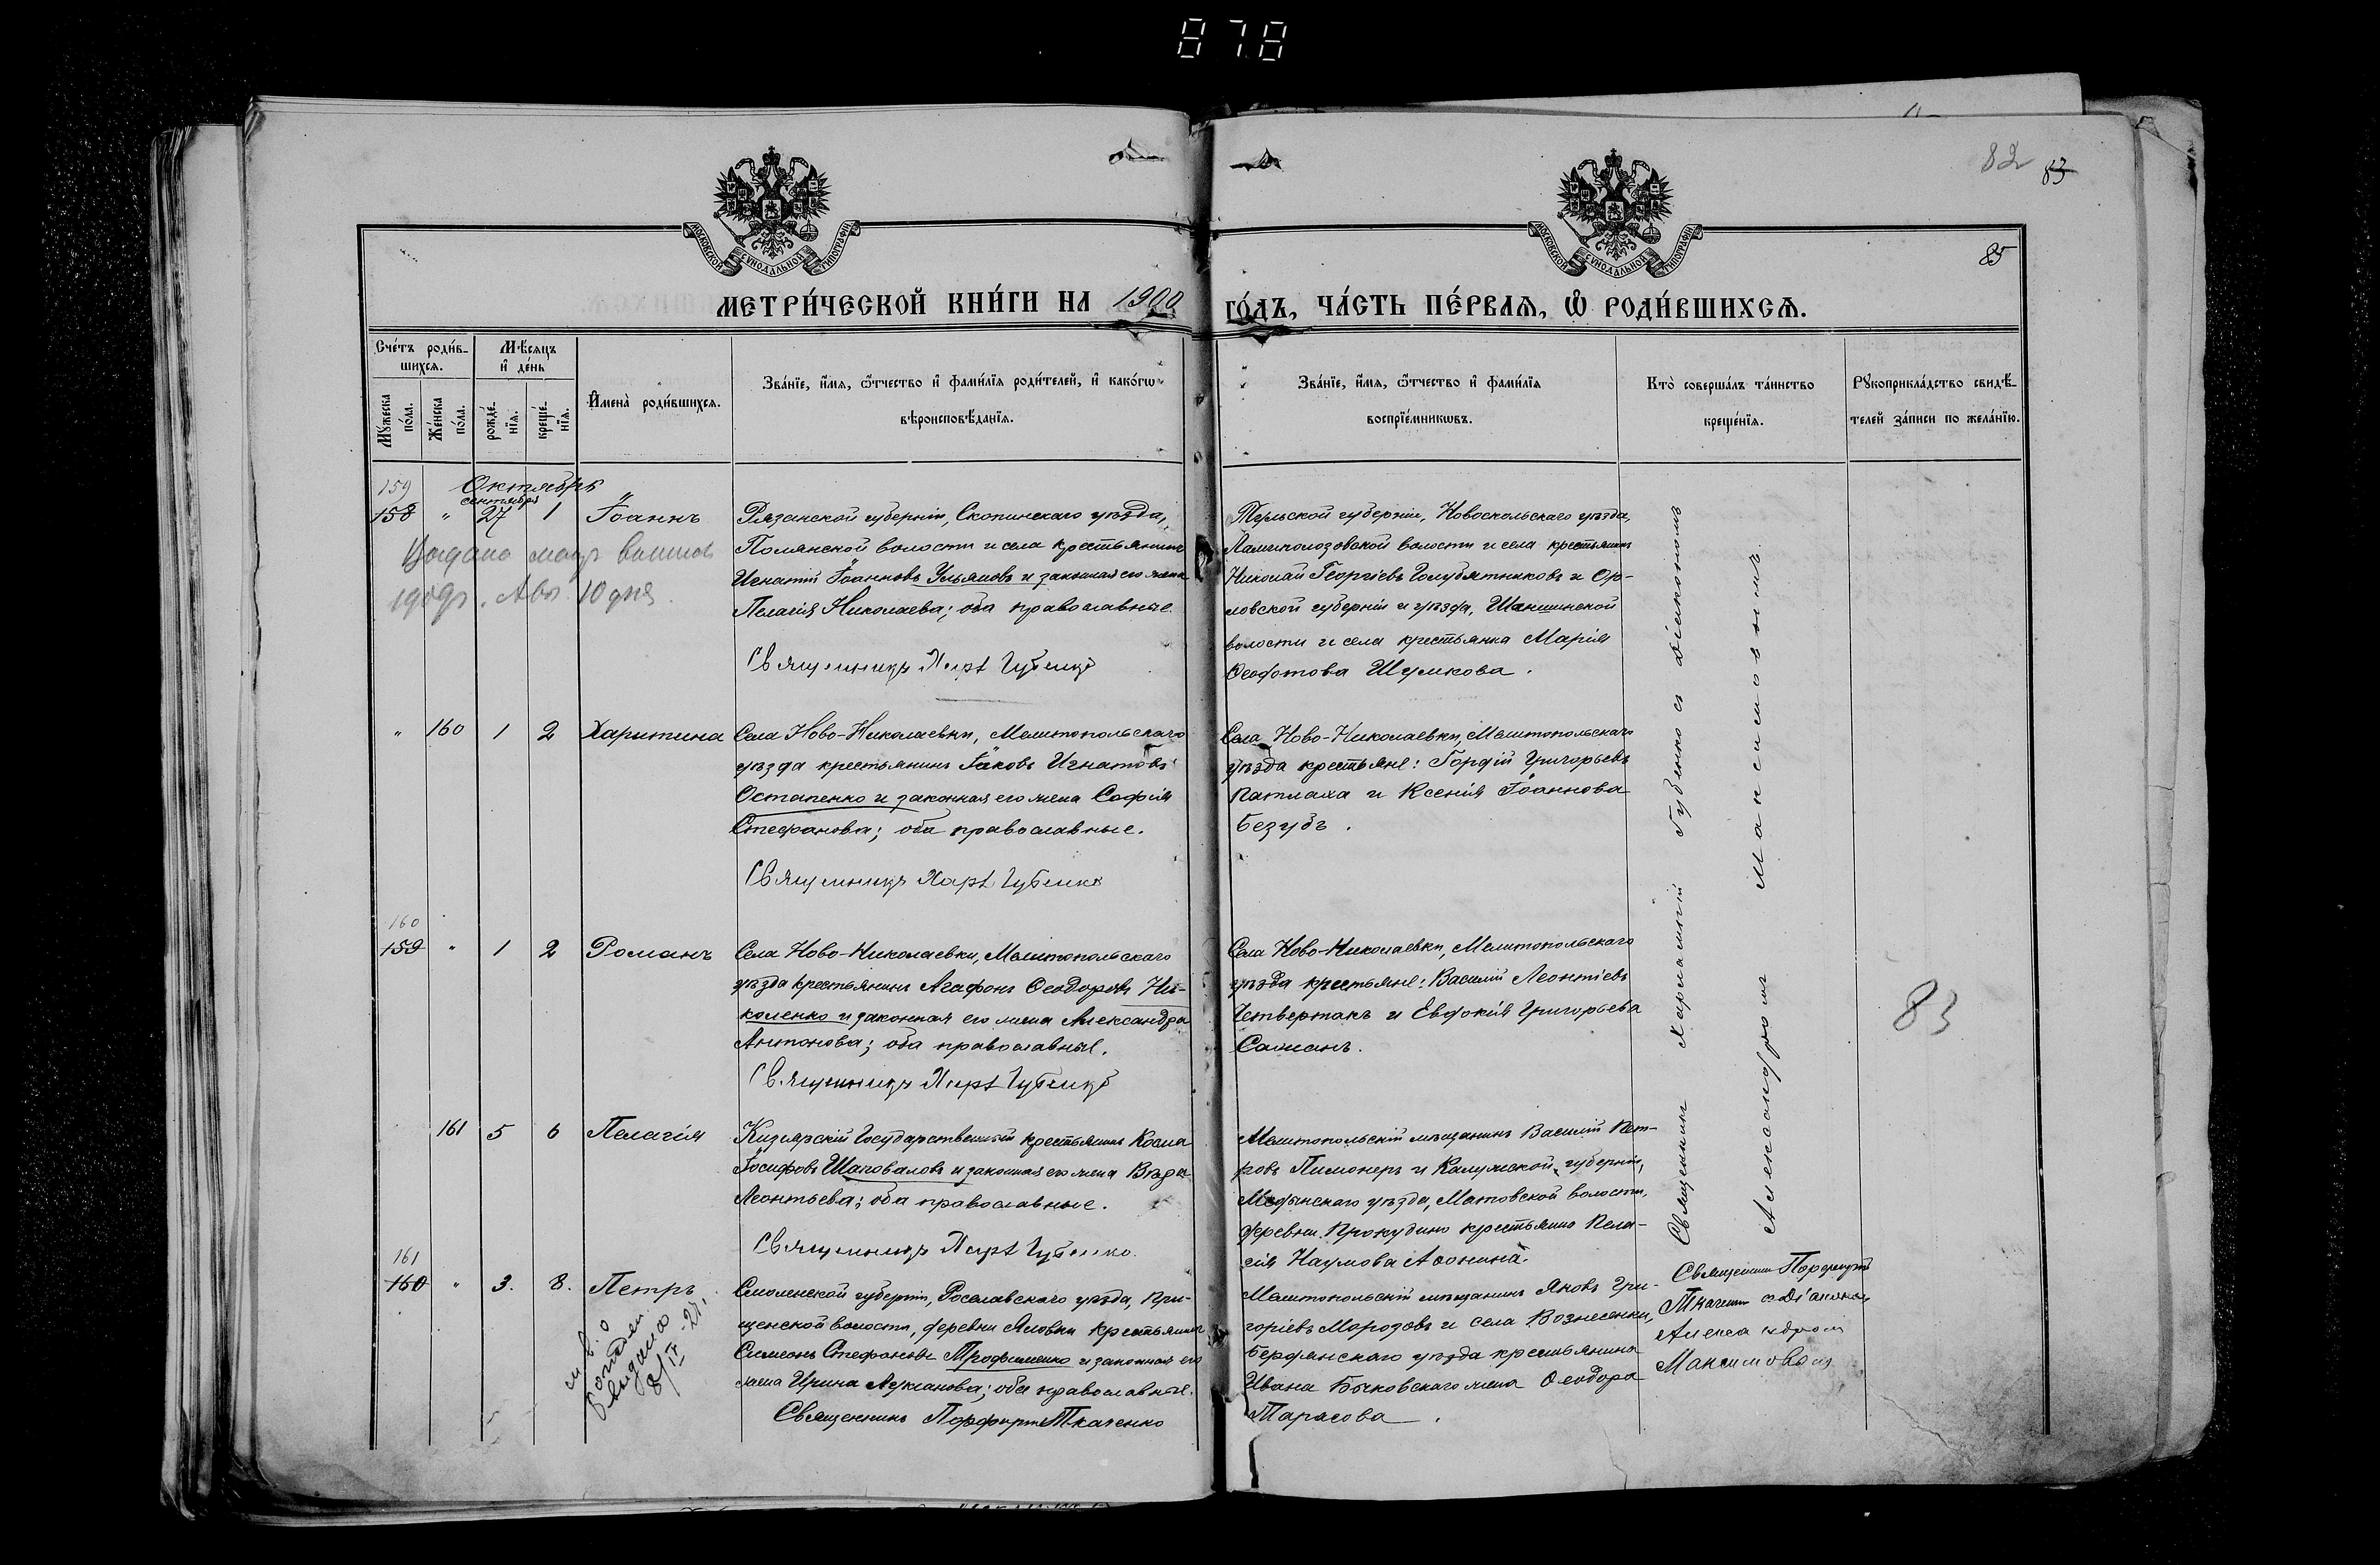 878
82 83
85
МОСКОВСКОЙ СѴНОДАЛЬНОЙ ТИПОГРАФІИ
МОСКОВСКОЙ СѴНОДАЛЬНОЙ ТИПОГРАФІИ
МЕТРИ́ЧЕСКОЙ КНИ́ГИ НА 1900 ГО́ДЪ, ЧА́СТЬ ПЕ́РВАѦ, Ѡ҆ РОДИ́ВШИХСѦ.
Сче́тъ роди́в-
шихсѧ.
Мꙋ́жеска
по́ла.
Же́нска
по́ла.
Мѣ́сѧцъ
и҆ де́нь
рожде́-
нїѧ.
креще́-
нїѧ.
И҆мена̀ роди́вшихсѧ.
Зва́нїе, и҆́мѧ, ѻ҆́тчество и҆ фами́лїѧ роди́телей, и҆ како́гѡ
вѣроисповѣ́данїѧ.
Зва́нїе, и҆́мѧ, ѻ҆́тчество и҆ фами́лїѧ
воспрїе́мникѡвъ.
Кто̀ соверша́лъ та́инство
креще́нїѧ.
Рꙋкоприкла́дство свидѣ́-
телей за́писи по жела́нїю.
Октябрь
159
158 " сентября 27 1 Іоаннъ
Рязанской губерніи, Скопинскаго уѣзда,
Полянской волости и села крестьянинъ
Игнатій Іоанновъ Ульяновъ и законная его жена
Пелагія Николаева; оба православные.
Священникъ Харт Губенко
Выдана
1909г. Авг. 10 дня
губерніи, Новоскольскаго уѣзда,
волости и села крестьянинъ
Николай Георгіевъ Голубятниковъ и Ор-
ловской губерніи и уѣзда,
волости и села крестьянка Марія
Ѳеодотова Шумкова.
" 160 1 2 Харитина
Села Ново-Николаевки, Мелитопольскаго
уѣзда крестьянинъ Іаковъ Игнатовъ
Остапенко и законная его жена Софія
Стефанова; оба православные.
Священникъ Харт Губенко
Села Ново-Николаевки, Мелитопольскаго
уѣзда крестьяне: Гордій Григорьевъ
Патлаха и Ксенія Іоаннова
Безубъ.
160
159 " 1 2 Романъ
Села Ново-Николаевки, Мелитопольскаго
уѣзда крестьянинъ Агафонъ Ѳеодоровъ Ни-
коленко и законная его жена Александра
Антонова; оба православные.
Священникъ Харт Губенко
Села Ново-Николаевки, Мелитопольскаго
уѣзда крестьяне: Василій Леонтіевъ
Четвертакъ и Евдокія Григорьева
Саманъ.
83
161 5 6 Пелагія
Кизлярскій Государственный крестьянинъ Косма
Іосифовъ Шаповаловъ и законная его жена Вѣра
Леонтьева; оба православные.
Священникъ Харт Губенко.
Мелитопольскій мѣщанинъ Василій Пет-
ровъ и Калужской губерніи,
Медынскаго уѣзда, волости,
деревни Прокудино крестьянка Пела-
гія Наумова Аѳонина.
Священникъ Харлампій Губенко съ діакономъ
Александромъ Максимовымъ.
161
160 " 3. 8. Петръ
выдана
8/IV-21.
Смоленской губерніи, Рославскаго уѣзда, При-
щенской волости, деревни Яловки крестьянинъ
Симеонъ Стефановъ Трофименко и законная его
жена Ирина; оба православные.
Священникъ Порфирій Ткаченко
Мелитопольскій мѣщанинъ Яковъ Гри-
горіевъ Морозовъ и села Вознесенки,
Бердянскаго уѣзда крестьянина
Ивана Бычковскаго жена Ѳеодора
Тарасова.
Священникъ Порфирій
Ткаченко съ діакономъ
Александромъ
Максимовымъ